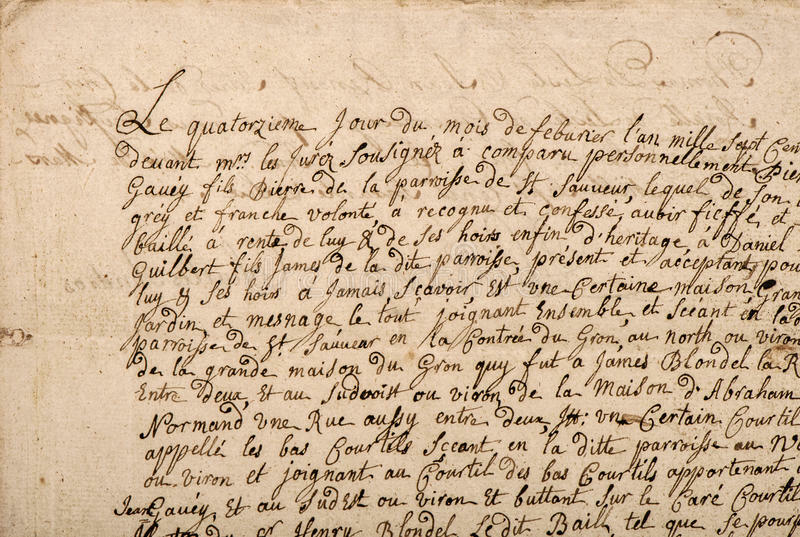 Le quatorzieme Jour du mois de feburier l'an mille sept Cen
devant mrs les Juréz Sousignéz a comparu personnellement Pier
Gavéy fils Pierre de la parroisse de St Sauveur, lequel de son
gréy et franche volonté, à recognu et confessé avoir fieffé, et
baillé à rente de luy & de ses hoirs enfin d'heritage, à Daniel
Guilbert fils James de la dite parroisse, présent et acceptant, pou
luy & ses hoirs à Jamais, Scavoir, Est vne Certaine maison, Gran
Jardin, et mesnage le tout joignant Ensemble et Scéant en la d
parroisse de St Sauveur en la Contrée du Gron, au north ou viron
de la grande maison du Gron quy fut a James Blondel la R
Entre deux, Et au Sudvoist ou viron de la Maison d'Abraham
Normand vne Rue aussy entre deux, Itt: vn Certain Courtil
appellé les bas Courtils Scéant en la ditte parroisse au No
ou viron et joignant au Courtil des bas Courtils appartenant a
Jean Gavéy, Et au Sudest ou viron Et buttant Sur le Caré Courtil
du Sr Henry Blondel Ledit Bail tel que Se pourp